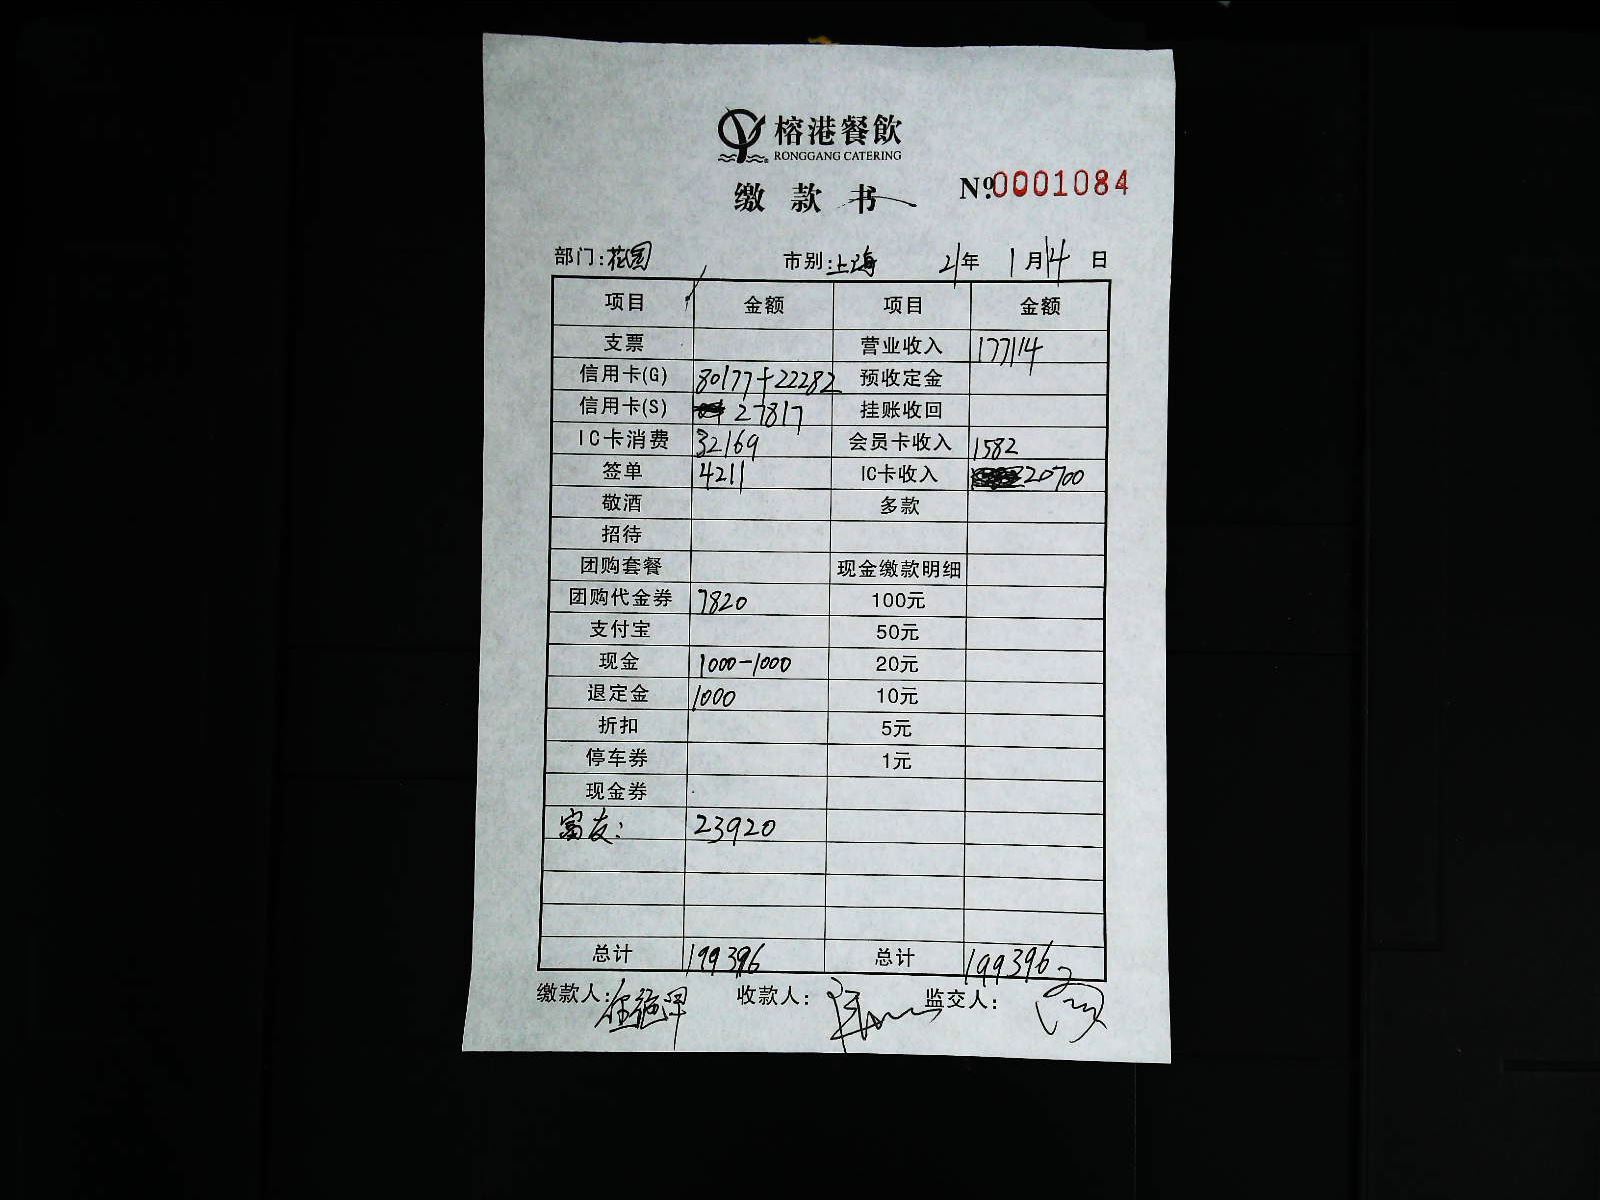 榕港餐飲
RONGGANG CATERING
缴款书 №0001084
部门:花园 市别:上海 21年 1月14日
项目 金额 项目 金额
支票 营业收入 177114
信用卡(G) 80177+22282 预收定金
信用卡(S) 27817 挂账收回
IC卡消费 32169 会员卡收入 1582
签单 4211 IC卡收入 20700
敬酒 多款
招待
团购套餐 现金缴款明细
团购代金券 7820 100元
支付宝 50元
现金 1000-1000 20元
退定金 1000 10元
折扣 5元
停车券 1元
现金券
富友: 23920
总计 199396 总计 199396
缴款人: 收款人: 监交人: